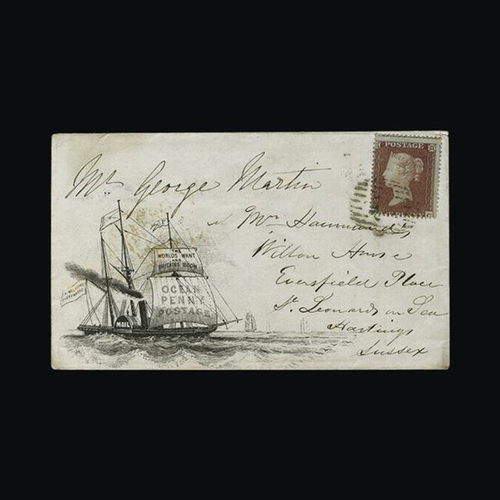 POSTAGE
Mr. George Martin
at Mrs Hammond's
Wilton House
Eversfield Place
St. Leonards on Sea
Hastings
Sussex
THE
WORLDS WANT
AND
SHOULD BE BRITAINS BOON
OCEAN
PENNY
POSTAGE
MAIL